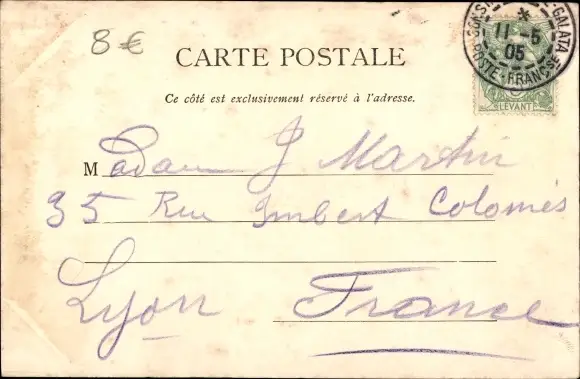 8 €
CONST -GALATA
11 -5
05
POSTE FRANÇSE
LEVANT
CARTE POSTALE
Ce côté est exclusivement réservé à l'adresse.
Madam J Martin
35 Rue Imbert Colomès
Lyon France